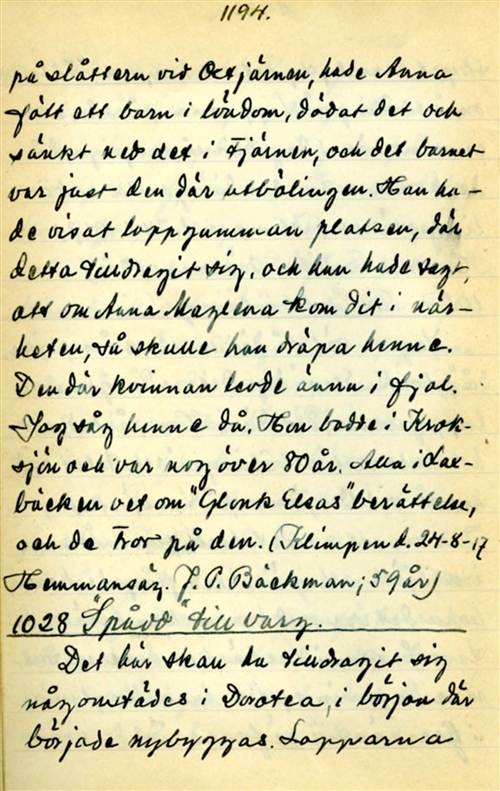 1194.
på slåttern vid Oxtjärnen, hade Anna
fått ett barn i löndom, dödat det och
sänkt ned det i tjärnen, och det barnet
var just den där utbölingen. Han ha-
de visat lappgumman platsen, där
detta tilldragit sig, och han hade sagt,
att om Anna Maglena kom dit i när-
heten, så skulle han dräpa henne.
Den där kvinnan levde ännu i fjol.
Jag såg henne då. Hon bodde i Krok-
sjön och var nog över 80 år. Alla i Lax-
bäcken vet om "Glonk Elsas" berättelse,
och de tror på den. (Klimpen d. 24-8-17
Hemmansäg. J. P. Bäckman, 59 år)
1028 "Spådd" till varg.
Det här skall ha tilldragit sig
någonstädes i Dorotea, i början där
började nybyggas. Lapparna